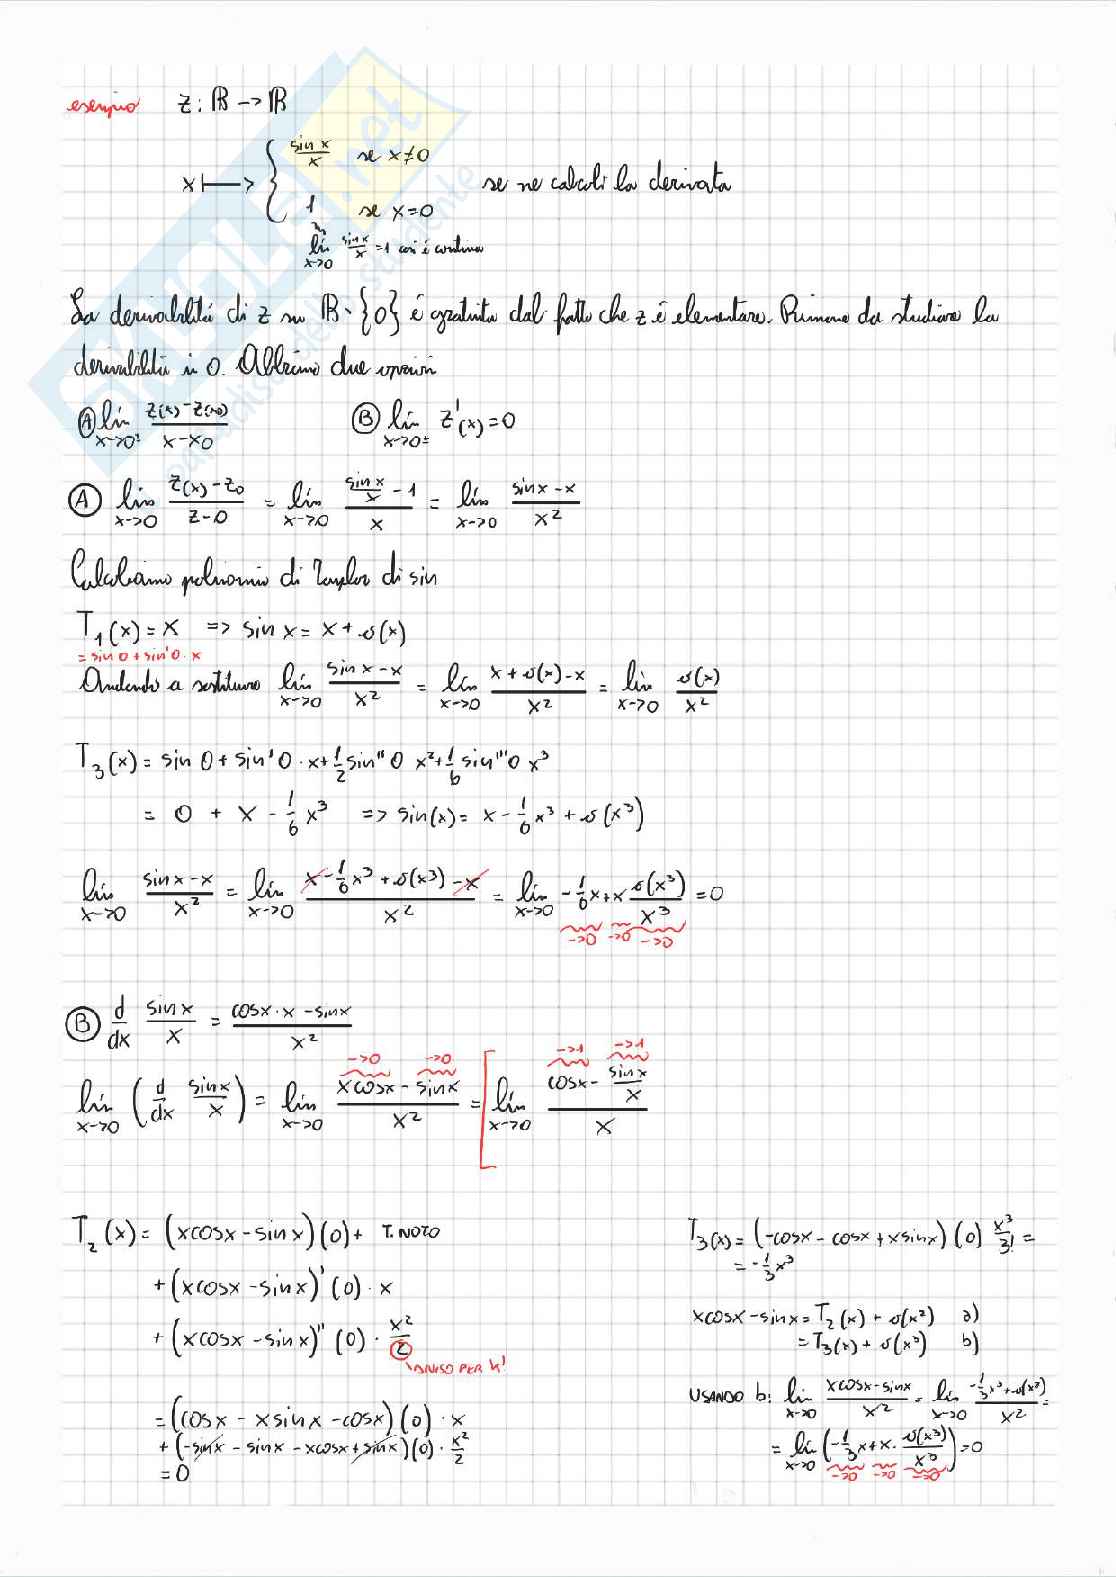 esempio z: ℝ -> ℝ
x ⟼ { sin x / x se x≠0
1 se x=0
se ne calcoli la derivata
lim x->0 sin x / x = 1 così è continua
La derivabilità di z su ℝ∖{0} è gratuita dal fatto che z è elementare. Rimane da studiare la
derivabilità in 0. Abbiamo due opzioni
Ⓐ lim x->0± z(x)-z(x0) / x-x0 Ⓑ lim x->0± z'(x)=0
Ⓐ lim x->0 z(x)-z0 / z-0 = lim x->0 (sin x / x - 1) / x = lim x->0 sin x - x / x²
Calcoliamo polinomio di Taylor di sin
T₁(x)=x => sin x = x + o(x)
= sin 0 + sin'0 · x
Andando a sostituire lim x->0 sin x - x / x² = lim x->0 x + o(x) - x / x² = lim x->0 o(x) / x²
T₃(x) = sin 0 + sin'0 · x + 1/2 sin''0 x² + 1/6 sin'''0 x³
= 0 + x - 1/6 x³ => sin(x) = x - 1/6 x³ + o(x³)
lim x->0 sin x - x / x² = lim x->0 x - 1/6 x³ + o(x³) - x / x² = lim x->0 - 1/6 x + x o(x³) / x³ = 0
->0 ->0 ->0
Ⓑ d/dx sin x / x = cos x · x - sin x / x²
->0 ->0 ->1 ->1
lim x->0 (d/dx sin x / x) = lim x->0 x cos x - sin x / x² = [ lim x->0 (cos x - sin x / x) / x
T₂(x) = (x cos x - sin x)(0) + T. NOTO
+ (x cos x - sin x)'(0) · x
+ (x cos x - sin x)''(0) · x²/2
DIVISO PER k!
= (cos x - x sin x - cos x)(0) · x
+ (-sin x - sin x - x cos x + sin x)(0) · x²/2
= 0
T₃(x) = (-cos x - cos x + x sin x)(0) x³/3! =
= - 1/3 x³
x cos x - sin x = T₂(x) + o(x²) a)
= T₃(x) + o(x³) b)
USANDO b: lim x->0 x cos x - sin x / x² = lim x->0 - 1/3 x³ + o(x³) / x² =
= lim x->0 (- 1/3 x + x · o(x³) / x³) = 0
->0 ->0 ->0